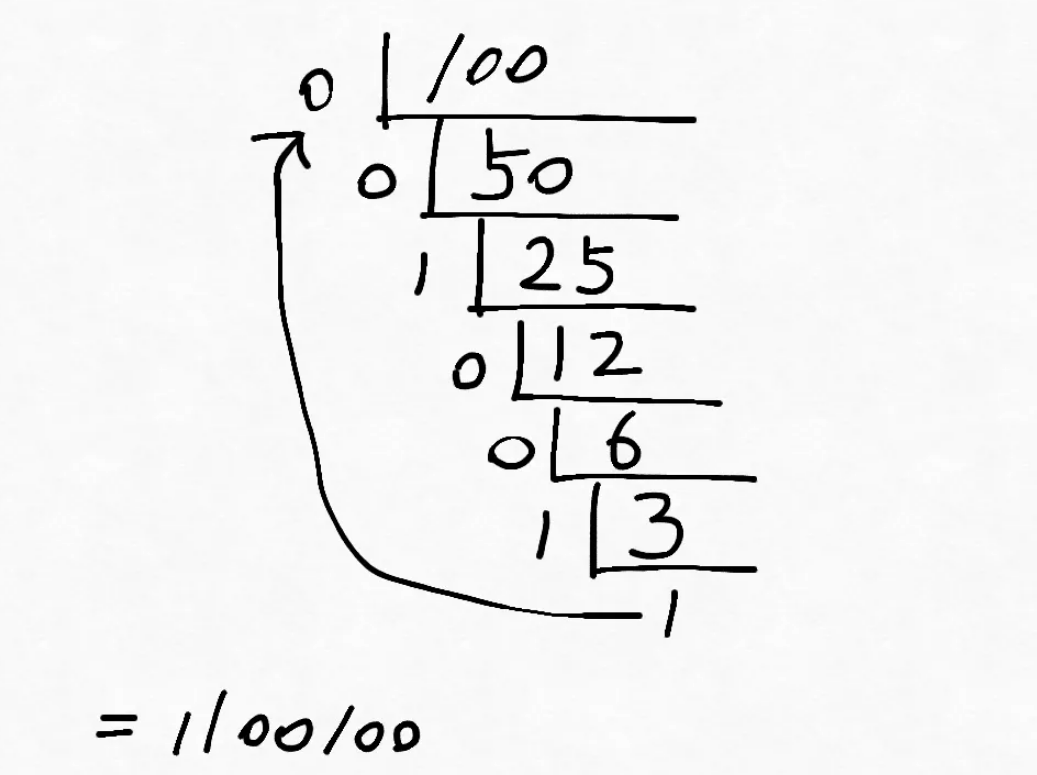 0 100
0 50
1 25
0 12
0 6
1 3
1
= 1100100